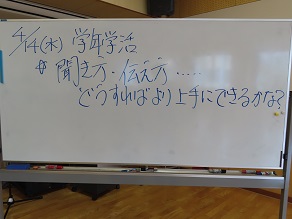 4/14(水) 学年学活
聞き方・伝え方……
どうすればより上手にできるかな？